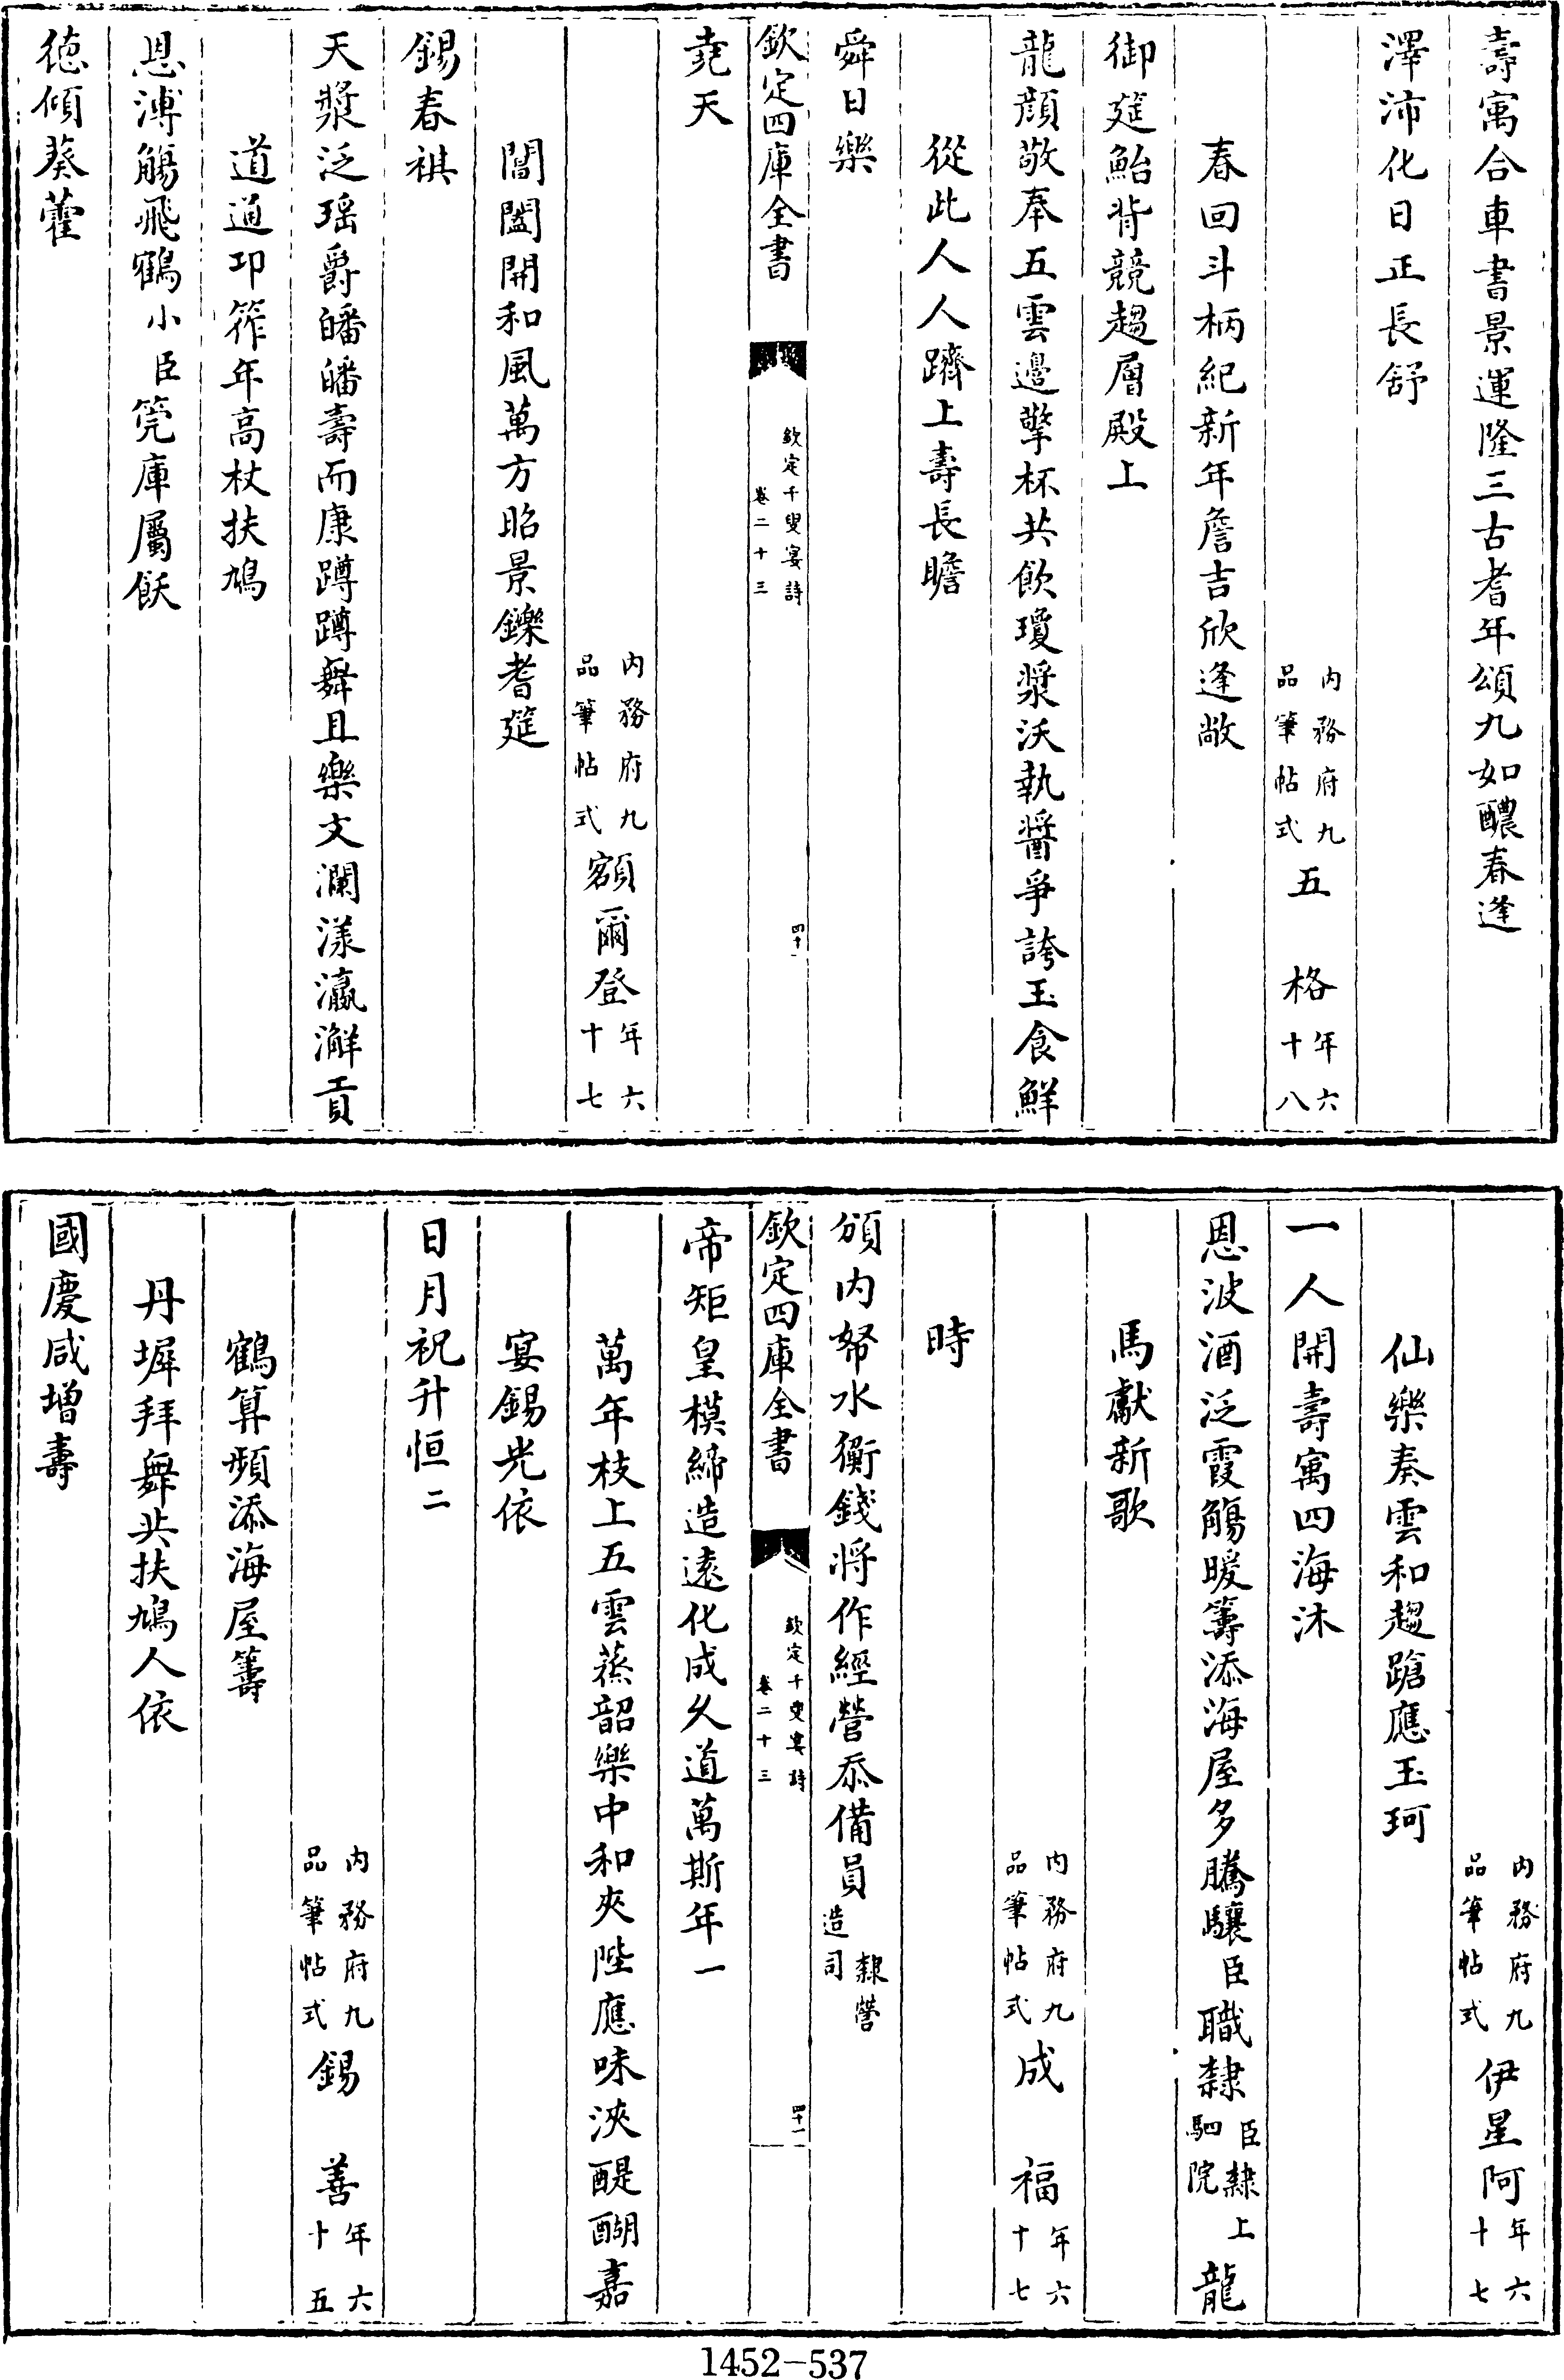 壽㝢合車書景運隆三古耆年頌九如醲春逢
澤沛化日正長舒
内務府九品筆帖式五　格年六十八
春回斗柄紀新年詹吉欣逢敞
御筵鮐背競趨層殿上
龍顔敬奉五雲邊擎杯共飲瓊漿沃執醬爭誇玉食鮮
從此人人躋上壽長瞻
舜日樂
欽定四庫全書
欽定千叟宴詩
卷二十三
四十
堯天
内務府九品筆帖式額爾登年六十七
閶闔開和風萬方昭景鑠耆筵
錫春祺
天漿泛瑶爵皤皤壽而康蹲蹲舞且樂文瀾漾瀛澥貢
道通邛筰年高杖扶鳩
恩溥觴飛鶴小臣筦庫屬飫
德傾葵藿
内務府九品筆帖式伊星阿年六十七
仙樂奏雲和趨蹌應玉珂
一人開壽㝢四海沐
恩波酒泛霞觴暖籌添海屋多騰驤臣職隸臣隸上駟院龍
馬獻新歌
内務府九品筆帖式成　福年六十七
時
頒内帑水衡錢將作經營忝備員隸營造司
欽定四庫全書
欽定千叟宴詩
卷二十三
四十一
帝矩皇模締造遠化成久道萬斯年一
萬年枝上五雲蒸韶樂中和夾陛應味浹醍醐嘉
宴錫光依
日月祝升恒二
内務府九品筆帖式錫　善年六十五
鶴算頻添海屋籌
丹墀拜舞共扶鳩人依
國慶咸增壽
1452-537